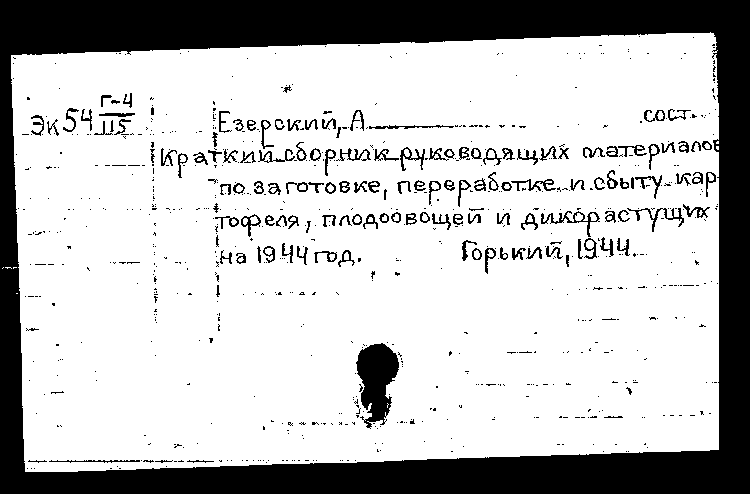 Эк54 Г-4
115
Езерский, А сост.
Краткий сборник руководящих материалов
по заготовке, переработке и сбыту кар-
тофеля, плодоовощей и дикорастущих
на 1944 год. Горький, 1944.